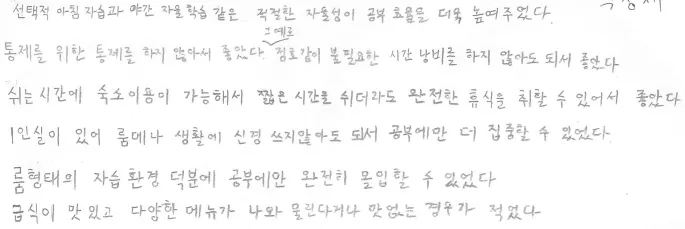 선택적 아침 자습과 야간 자율학습 같은 적절한 자율성이 공부 효율을 더욱 높여주었다.
통제를 위한 통제를 하지 않아서 좋았다. 그 예로 점호같이 불필요한 시간 낭비를 하지 않아도 되서 좋았다
쉬는시간에 숙소이용이 가능해서 짧은 시간을 쉬더라도 완전한 휴식을 취할 수 있어서 좋았다
1인실이 있어 룸메나 생활에 신경 쓰지않아도 되서 공부에만 더 집중할 수 있었다.
룸형태의 자습환경 덕분에 공부에만 완전히 몰입할 수 있었다
급식이 맛있고 다양한 메뉴가 나와 물린다거나 맛없는 경우가 적었다